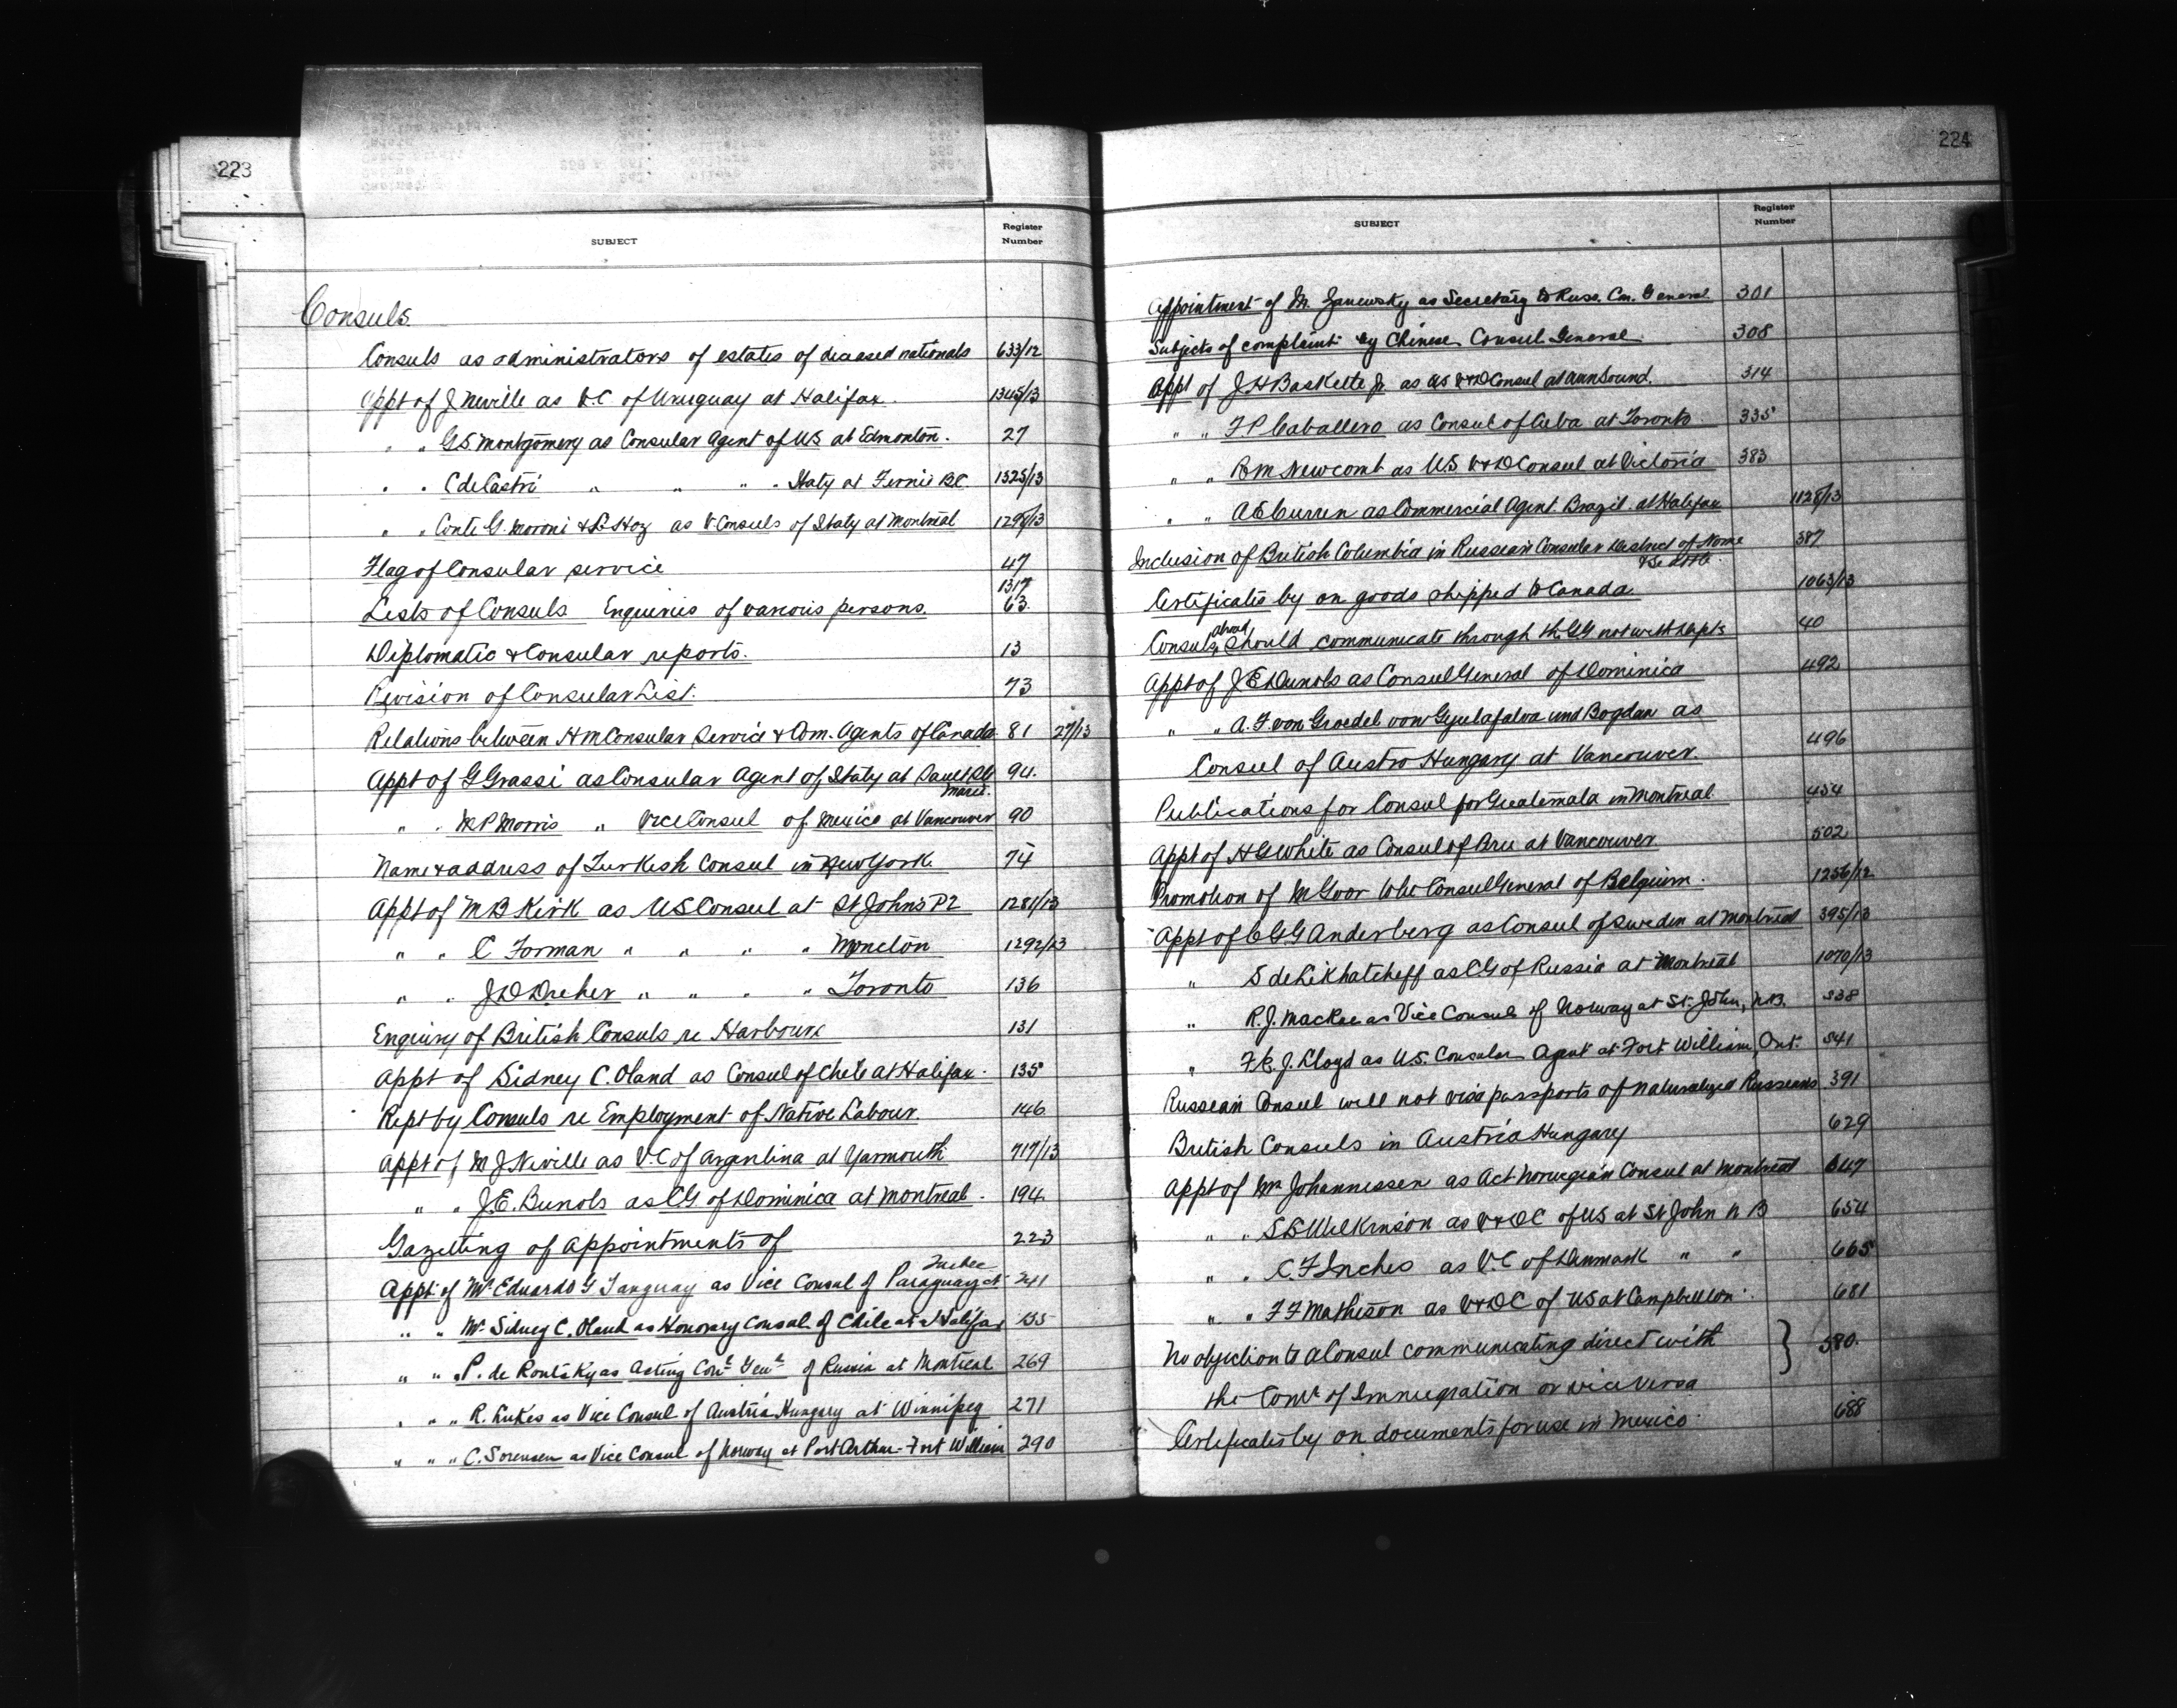 223
SUBJECT
Register
Number
Consuls.
Consuls as administrators of estates of deceased nationals 633/12
Appt of J Neville as V.C. of Uruguay at Halifax. 1345/13
" " G.S. Montgomery as Consular Agent of US at Edmonton. 27
" " C de Castri " " " " Italy at Fernie BC. 1325/13
" " Conte G. Moroni & L Hoz as V. Consuls of Italy at Montreal 1298/13
Flag of Consular service 47
1317
Lists of Consuls Enquiries of various persons. 63
Diplomatic & Consular reports. 13
Revision of Consular List. 73
Relations between HM Consular Service & Com. Agents of Canada 81 27/13
Appt of G Grassi as Consular Agent of Italy at Sault Ste 94.
Marie.
" " M P Morris " Vice Consul of Mexico at Vancouver 90
Name & address of Turkish Consul in New York 74
Appt of M B Kirk as US Consul at St Johns P2 1281/13
" " C Forman " " " " Moncton 1292/13
" " J D Dreher " " " " Toronto 136
Enquiry of British Consuls re Harbours 131
Appt of Sidney C. Oland as Consul of Chile at Halifax. 135
Rept by Consuls re Employment of Native Labour. 146
Appt of M J Neville as V.C of Argentina at Yarmouth 717/13
" " J.E. Dunols as CG of Dominica at Montreal. 194
Gazetting of appointments of 223
Quebec
Appt. of Mr Eduardo G Tanguay as Vice Consul of Paraguay at 241
" " Mr Sidney C. Oland as Honorary Consul of Chile at Halifax 135
" " P. de Routsky as Acting Conl Genl of Russia at Montreal 269
" " " R. Lukes as Vice Consul of Austria Hungary at Winnipeg 271
" " " C. Sorensen as Vice Consul of Norway at Port Arthur-Fort William 290
224
SUBJECT
Register
Number
Appointment of M. Zanewsky as Secretary to Russ. Con. General 301
Subjects of complaint by Chinese Consul General. 308
Appt of J H Baskette Jr. as US V&D Consul at Owen Sound. 314
" " F P Caballero as Consul of Cuba at Toronto 335
" " R M Newcomb as U.S. V&D Consul at Victoria 383
" " A E Curren as Commercial Agent Brazil at Halifax 1128/13
Inclusion of British Columbia in Russian Consular district of Nome 387
& Seattle
Certificates by on goods shipped to Canada. 1063/13
abroad
Consuls should communicate through the GG not with Depts 40
Appt of J E Dunols as Consul General of Dominica 492
" " A. F. von Groedel von Gyulafalva und Bogdan as
Consul of Austro Hungary at Vancouver. 496
Publications for Consul for Guatemala in Montreal 454
Appt of H G White as Consul of Peru at Vancouver. 502
Promotion of M Goor late Consul General of Belgium. 1256/12
Appt of C G G Anderberg as Consul of Sweden at Montreal 395/13
" S de Likhatcheff as CG of Russia at Montreal 1070/13
" R. J. MacRae as Vice Consul of Norway at St. John, N.B. 538
" F. E. J. Lloyd as U.S. Consular Agent at Fort William, Ont. 541
Russian Consul will not visa passports of naturalized Russians 391
British Consuls in Austria Hungary 629
Appt of Mr Johannessen as Act. Norwegian Consul at Montreal 647
" " S B Wilkinson as V&DC of US at St John N B 654
" " C. F Inches as V.C of Denmark " " 665
" " F F Matheson as V&DC of US at Campbellton. 681
No objection to a Consul communicating direct with } 580.
the Comr of Immigration or vice versa
Certificates by on documents for use in Mexico. 688